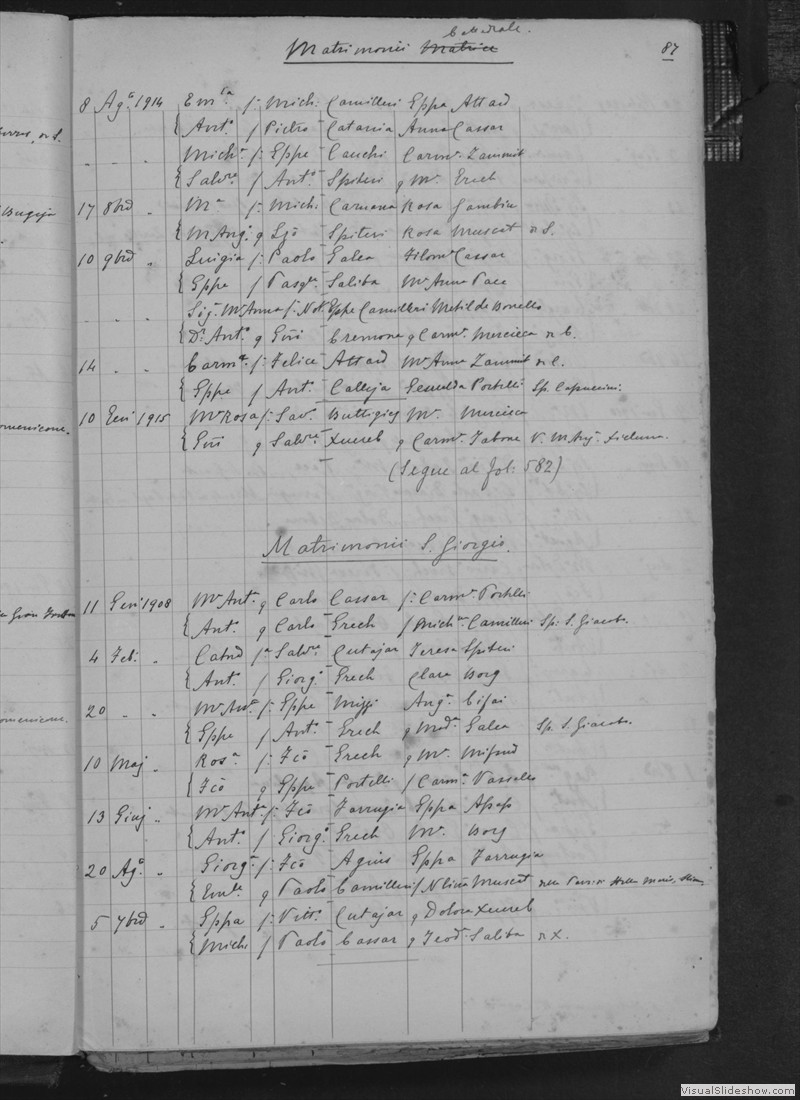 Cattedrale.
Matrimonii Matrice 87
8 Agº 1914 Emᵃ f: Mich: Camilleri Eppa Attard
{ Antº f Pietro Catania Anna Cassar
" " " Michᵃ f: Eppe Cauchi Carmᵃ Zammit
{ Salvʳᵉ f Antº Spiteri q Mᵃ Grech
17 8bre " Mᵃ f: Mich: Caruana Rosa Gambin
{ M Angº q Ljō Spiteri Rosa Muscat n S.
10 9bre " Luigia f: Paolo Galea Filomᵃ Cassar
{ Eppe f Pasqˡᵉ Saliba Mᵃ Anna Pace
" " " Sigᵃ Mᵃ Anna f: Not. Eppe Camilleri Metilde Bonello
{ Dʳ Antº q Gio Cremona q Carmᵃ Mercieca n C.
14 " " Carmᵃ f: Felice Attard Mᵃ Anna Zammit n C.
{ Eppe f Antº Calleja Portelli Sp. Capuccini.
10 Gen 1915 Mᵃ Rosa f: Sav. Buttigieg Mᵃ Mercieca
{ Gio q Salvʳᵉ Xuereb q Carmᵃ Tabone V. M.
(Segue al fol: 582)
Matrimonii S. Giorgio.
11 Gen 1908 Mᵃ Antᵃ q Carlo Cassar f: Carmᵃ Portelli
{ Antº q Carlo Grech f Michᵃ Camilleri Sp. S. Giacobo.
4 Feb. " Catnᵃ fᵃ Salvʳᵉ Cutajar Teresa Spiteri
{ Antº f Giorgº Grech Clara Borg
20 " " f: Eppe Mizzi Angᵃ
{ Eppe f Antº Grech q Madᵃ Galea Sp. S. Giacobo.
10 Maj " Rosᵃ f: Fcō Grech q Mᵃ Mifsud
{ Fcō q Eppe Portelli f Carmᵃ Vassallo
13 Giuj " Mᵃ Antᵃ f: Fcō Farrugia Eppa
{ Antº f Giorgº Grech Mᵃ Borg
20 Agº " Giorgᵃ f: Fcō Agius Eppa Farrugia
{ Emˡᵉ q Paolo Camilleri f Muscat
5 7bre " Eppa f: Vittº Cutajar q Dolora Xuereb
{ Mich: f Paolo Cassar q Teodᵃ Saliba n X.
VisualSlideshow.com